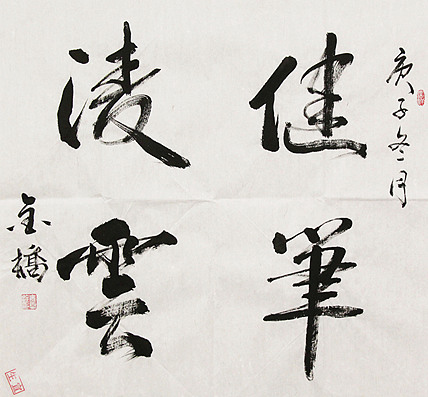 庚子冬月
健筆
凌雲
金橋